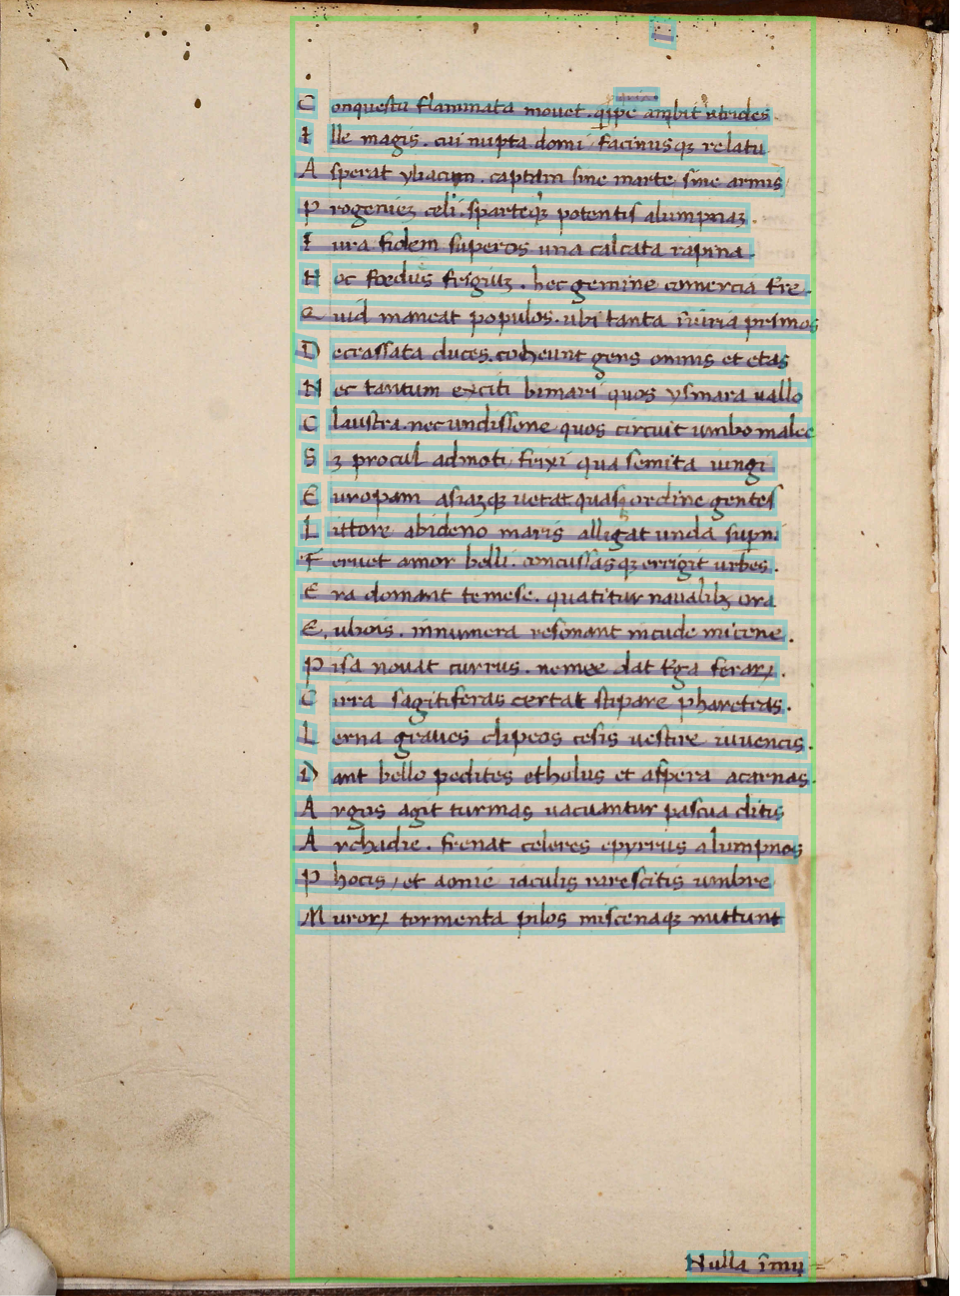 Conquestu flammata mouet. qipe ambit utrides
Ille magis. cui nupta domi facinusqȝ relatu
Asperat ybacum. captam sine marte, sine armis
Progenieȝ celi. sparteqȝ potentis alumpnaȝ.
Iura fidem superos una calcata rapina.
Hoc foedus frigiuȝ. hec gemine comercia fre.
Quid maneat populos. ubi tanta iniuria primos
Decrassata duces. coheunt gens omnis et etas
Nec tantum exciti bimari quos ysmara uallo
Claustra. nec undissone quos circuit umbo malee
Sȝ procul admoti. frixi qua semita iungi
Europam asiaȝqȝ uetat. quasqȝ ordine gentes
Littore abideno maris alligat unda supn.
Feruet amor belli. concussasqȝ errigit urbes.
Era domant temese. quatitur naualibȝ ora
Eubois. innumera resonant incude micene.
Pisa nouat currus. nemee dat terga ferarꝝ.
Cirra sagitiferas certat stipare pharetras.
Lerna graues clipeos cesis uestire iuuencis.
Dant bello pedites etholus et aspera acarnas.
Argus agit turmas uacuantur pascua ditis
Archadie. frenat celeres epyrrius alumpnos
Phocis, et aonie iaculis rarescitis umbre
Murorꝝ tormenta pilos miscenaqȝ mittunt
Nulla imu